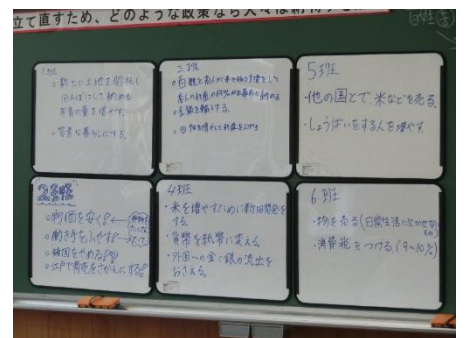 立て直すため、どのような政策なら人々は納得する
1班
・新たに土地を開拓し
田んぼにして納める
年貢の量を増やす。
・質素な暮らしにする。
三班
・金銀を輸入する。
5班
・他の国とで、米などを売る。
・しょうばいをする人を増やす。
2班
・物価を安く
・働き手をふやす
・鎖国をやめる
・江戸で商売をさかんにする
4班
・米を増やすために新田開発を
する。
・貨幣を紙幣に変える
・外国への金と銀の流出を
おさえる。
6班
・物を売る(日常生活に欠かせない
もの)
・消費税をつける(9~10%)